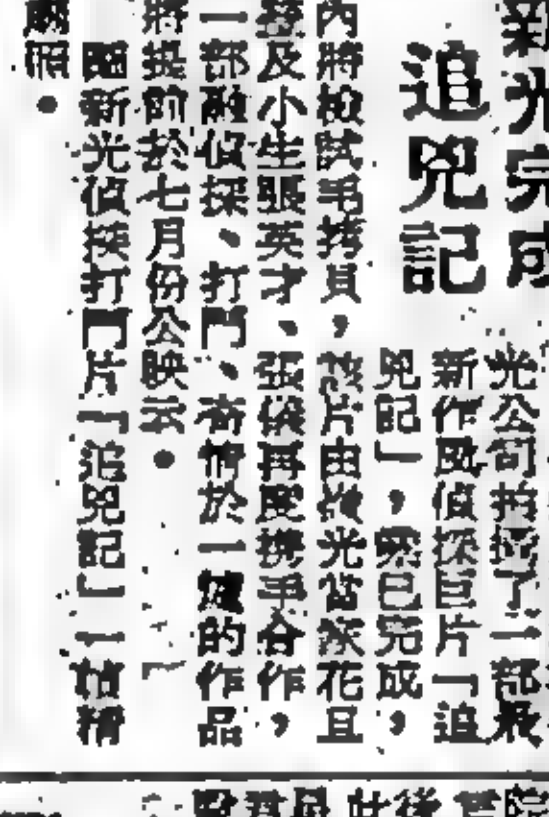 新光完成
追兇記
光公司拍攝了一部最
新作風偵探巨片「追
兇記」，業已完成，
內將檢試毛拷貝，該片由 光當家花旦
及小生張英才、張 再度携手合作，
一部融偵探、打鬥、奇情於一爐的作品
將提前於七月份公映云●
圖新光偵探打鬥片「追兇記」一幀精
照●